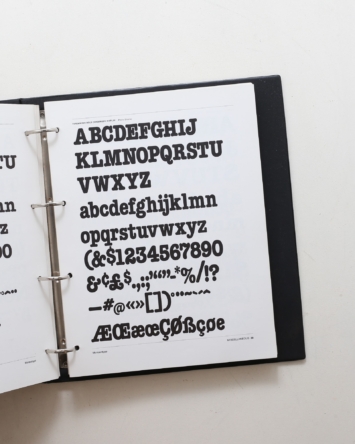 ABCDEFGHIJ
KLMNOPQRSTU
VWXYZ
abcdefghijklmn
opqrstuvwxyz
(&$1234567890
&¢£$.,:;“”‘’-*%/!?
—#@«»[]
ÆŒæœÇØßçøe